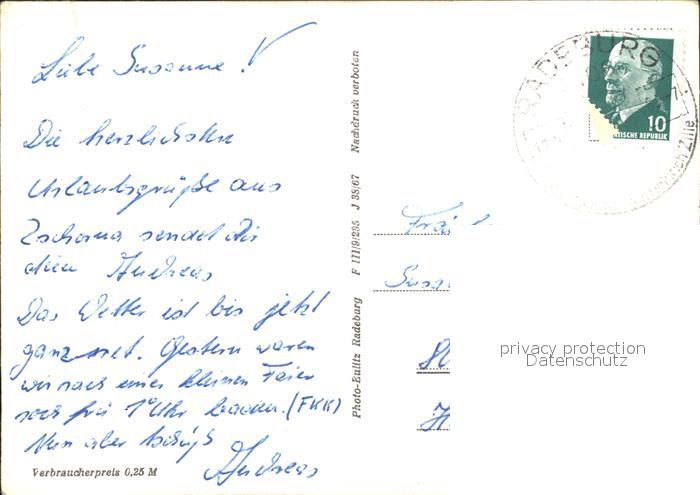 Liebe Susanne!
Die herzlichsten
Urlaubsgrüße aus
Zschorna sendet dir
dein Andreas
Das Wetter ist bis jetzt
ganz nett. Gestern waren
wir nach einer kleinen Feier
noch früh 1°Uhr baden. (FKK)
Nun aber tschüß
Andreas
Verbraucherpreis 0,25 M
Photo-Eulitz Radeburg F 111/9/235 J 38/67 Nachdruck verboten
RADEBURG
Heinrich Zille
10
TSCHE REPUBLIK
Frä
Susa
privacy protection
Datenschutz